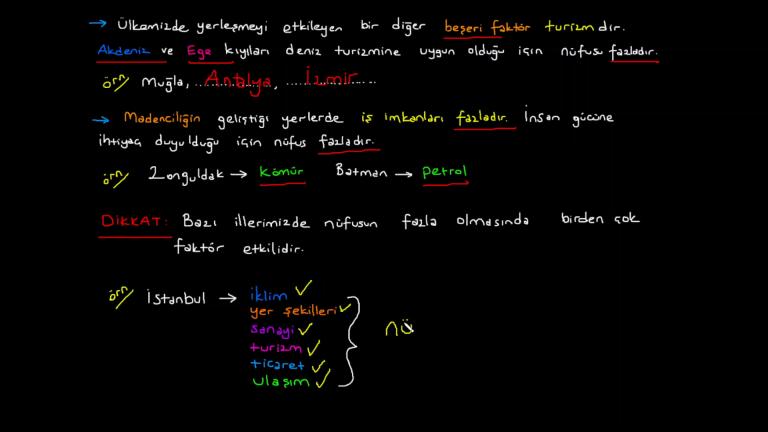 → Ülkemizde yerleşmeyi etkileyen bir diğer beşeri faktör turizmdir.
Akdeniz ve Ege kıyıları deniz turizmine uygun olduğu için nüfusu fazladır.
örn/ Muğla, Antalya, İzmir
→ Madenciliğin geliştiği yerlerde iş imkanları fazladır. İnsan gücüne
ihtiyaç duyulduğu için nüfus fazladır.
örn/ Zonguldak → kömür Batman → petrol
DİKKAT: Bazı illerimizde nüfusun fazla olmasında birden çok
faktör etkilidir.
örn/ İstanbul → iklim ✓
yer şekilleri ✓
sanayi ✓
turizm ✓
ticaret ✓
ulaşım ✓
nü